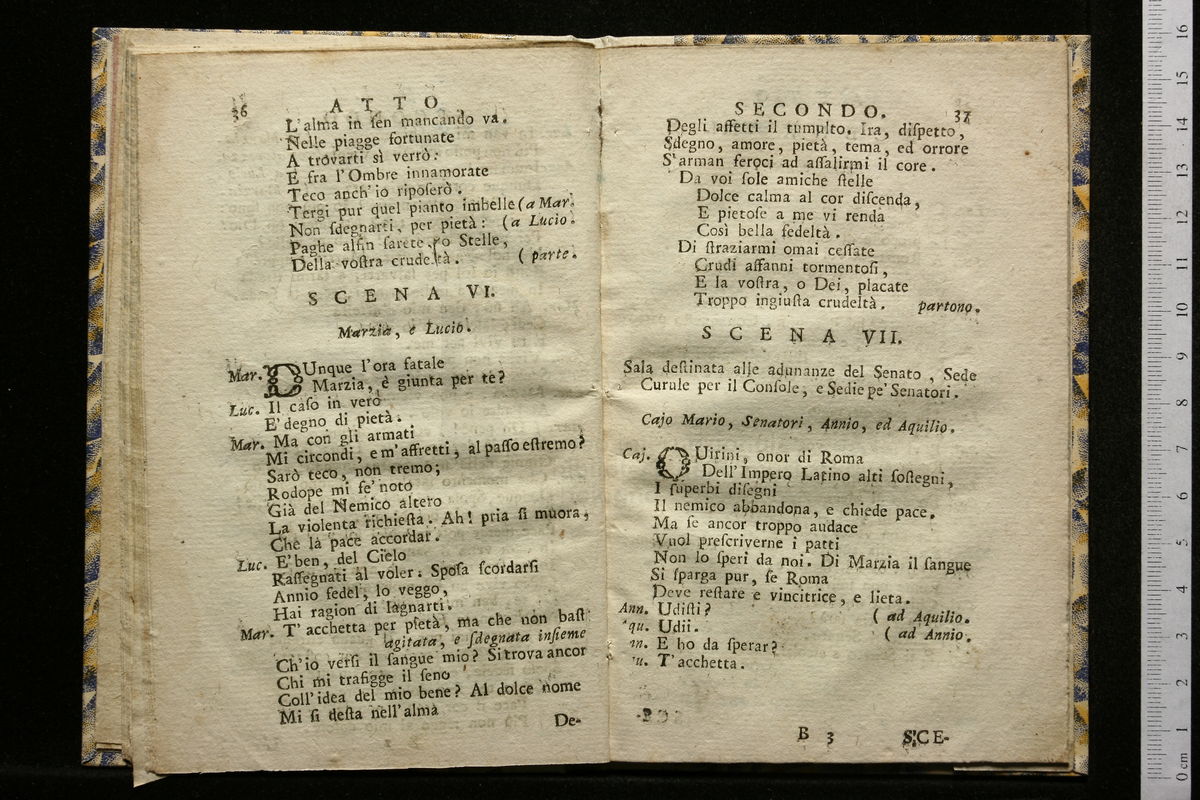 36
ATTO
L'alma in ſen mancando va.
Nelle piagge fortunate
A trovarti sì verrò:
E fra l'Ombre innamorate
Teco anch'io riposerò.
Tergi pur quel pianto imbelle (a Mar.
Non ſdegnarti, per pietà: (a Lucio.
Paghe alfin ſarete, o Stelle,
Della voſtra crudeltà. (parte.
SCENA VI.
Marzia, e Lucio.
Mar. DUnque l'ora fatale
Marzia, è giunta per te?
Luc. Il caſo in vero
E' degno di pietà.
Mar. Ma con gli armati
Mi circondi, e m'affretti, al paſſo eſtremo?
Sarò teco, non tremo;
Rodope mi fe' noto
Già del Nemico altero
La violenta richieſta. Ah! pria ſi muora,
Che la pace accordar.
Luc. E' ben, del Cielo
Raſſegnati al voler. Spoſa ſcordarſi
Annio fedel, lo veggo,
Hai ragion di lagnarti.
Mar. T' acchetta per pietà, ma che non baſt
agitata, e ſdegnata inſieme
Ch'io verſi il ſangue mio? Si trova ancor
Chi mi trafigge il ſeno
Coll' idea del mio bene? Al dolce nome
Mi ſi deſta nell'alma
De-
SECONDO.
37
Degli affetti il tumulto. Ira, diſpetto,
Sdegno, amore, pietà, tema, ed orrore
S'arman feroci ad aſſalirmi il core.
Da voi ſole amiche ſtelle
Dolce calma al cor diſcenda,
E pietoſe a me vi renda
Così bella fedeltà.
Di ſtraziarmi omai ceſſate
Crudi affanni tormentoſi,
E la voſtra, o Dei, placate
Troppo ingiuſta crudeltà. partono.
SCENA VII.
Sala deſtinata alle adunanze del Senato, Sede
Curule per il Conſole, e Sedie pe' Senatori.
Cajo Mario, Senatori, Annio, ed Aquilio.
Caj. QUirini, onor di Roma
Dell'Impero Latino alti ſoſtegni,
I ſuperbi diſegni
Il nemico abbandona, e chiede pace.
Ma ſe ancor troppo audace
Vuol preſcriverne i patti
Non lo ſperi da noi. Di Marzia il ſangue
Si ſparga pur, ſe Roma
Deve reſtare e vincitrice, e lieta.
Ann. Udiſti? (ad Aquilio.
qu. Udii. (ad Annio.
n. E ho da ſperar?
u. T'acchetta.
B 3
SCE-